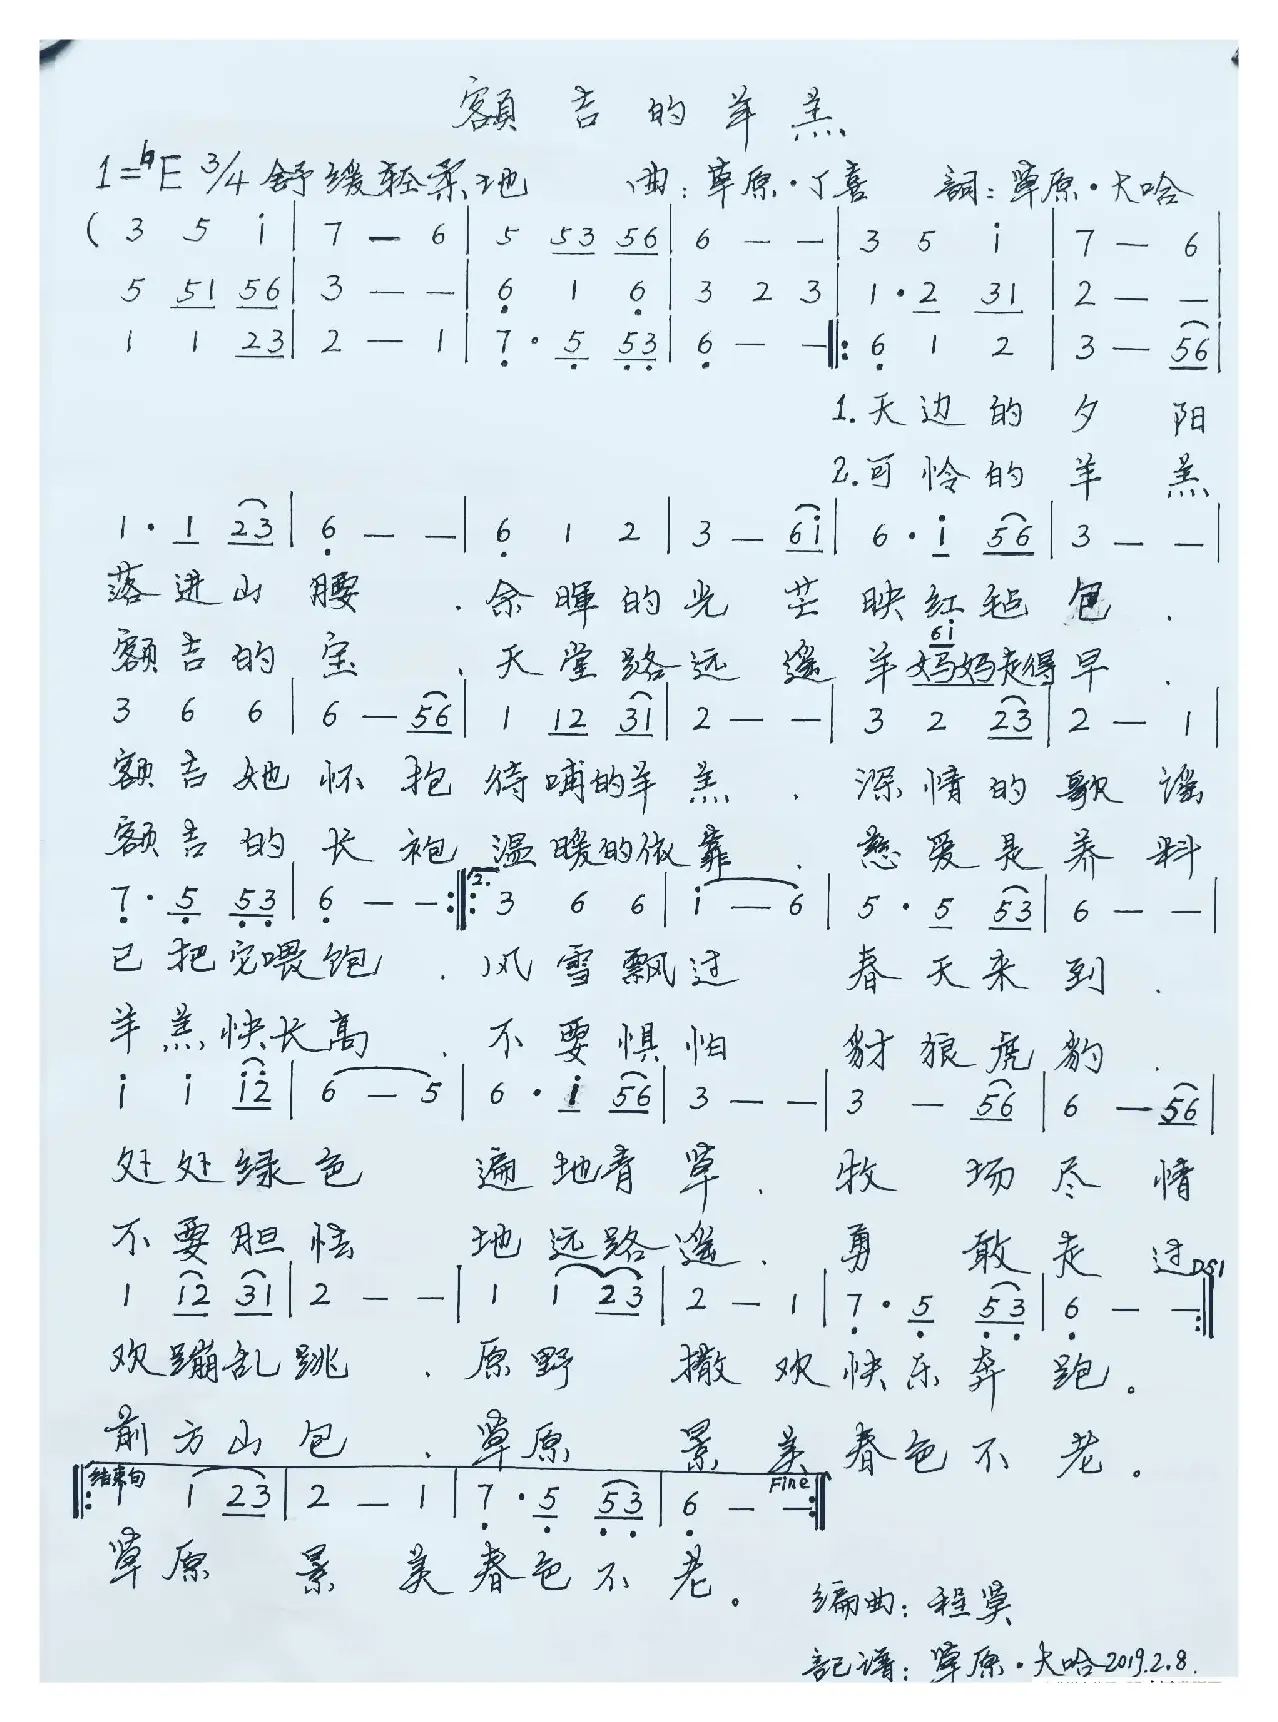 额吉的羊羔
1=♭E 3/4 舒缓轻柔地 曲:草原·丁喜 詞:草原·大哈
( 3 5 i | 7 — 6 | 5 53 56 | 6 — — | 3 5 i | 7 — 6 |
5 51 56 | 3 — — | 6̣ 1 6̣ | 3 2 3 | 1·2 31 | 2 — — |
1 1 23 | 2 — 1 | 7̣·5̣ 5̣3̣ | 6̣ — — ‖: 6̣ 1 2 | 3 — 56 |
1.天边的夕阳
2.可怜的羊羔
1·1 23 | 6̣ — — | 6̣ 1 2 | 3 — 6i | 6·i 56 | 3 — — |
落进山腰.余暉的光芒映红毡包.
6i
额吉的宝.天堂路远遥羊妈妈走得早.
3 6 6 | 6 — 56 | 1 12 31 | 2 — — | 3 2 23 | 2 — 1 |
额吉她怀抱待哺的羊羔.深情的歌谣
额吉的长袍温暖的依靠.慈爱是养料
7̣·5̣ 5̣3̣ | 6̣ — — :‖: 2. 3 6 6 | i — 6 | 5·5 53 | 6 — — |
已把它喂饱.风雪飘过 春天来到.
羊羔快长高.不要惧怕 豺狼虎豹.
i i i2̇ | 6 — 5 | 6·i 56 | 3 — — | 3 — 56 | 6 — 56 |
处处绿色 遍地青草.牧场尽情
不要胆怯 地远路遥.勇敢走过
DS1
1 12 31 | 2 — — | 1 1 23 | 2 — 1 | 7̣·5̣ 5̣3̣ | 6̣ — — :‖
欢蹦乱跳.原野 撒欢快乐奔跑。
前方山包.草原 景美春色不老。
结束句 Fine
‖: 1 1 23 | 2 — 1 | 7̣·5̣ 5̣3̣ | 6̣ — — :‖
草原 景美春色不老。
编曲:程昊
記谱:草原·大哈2019.2.8.